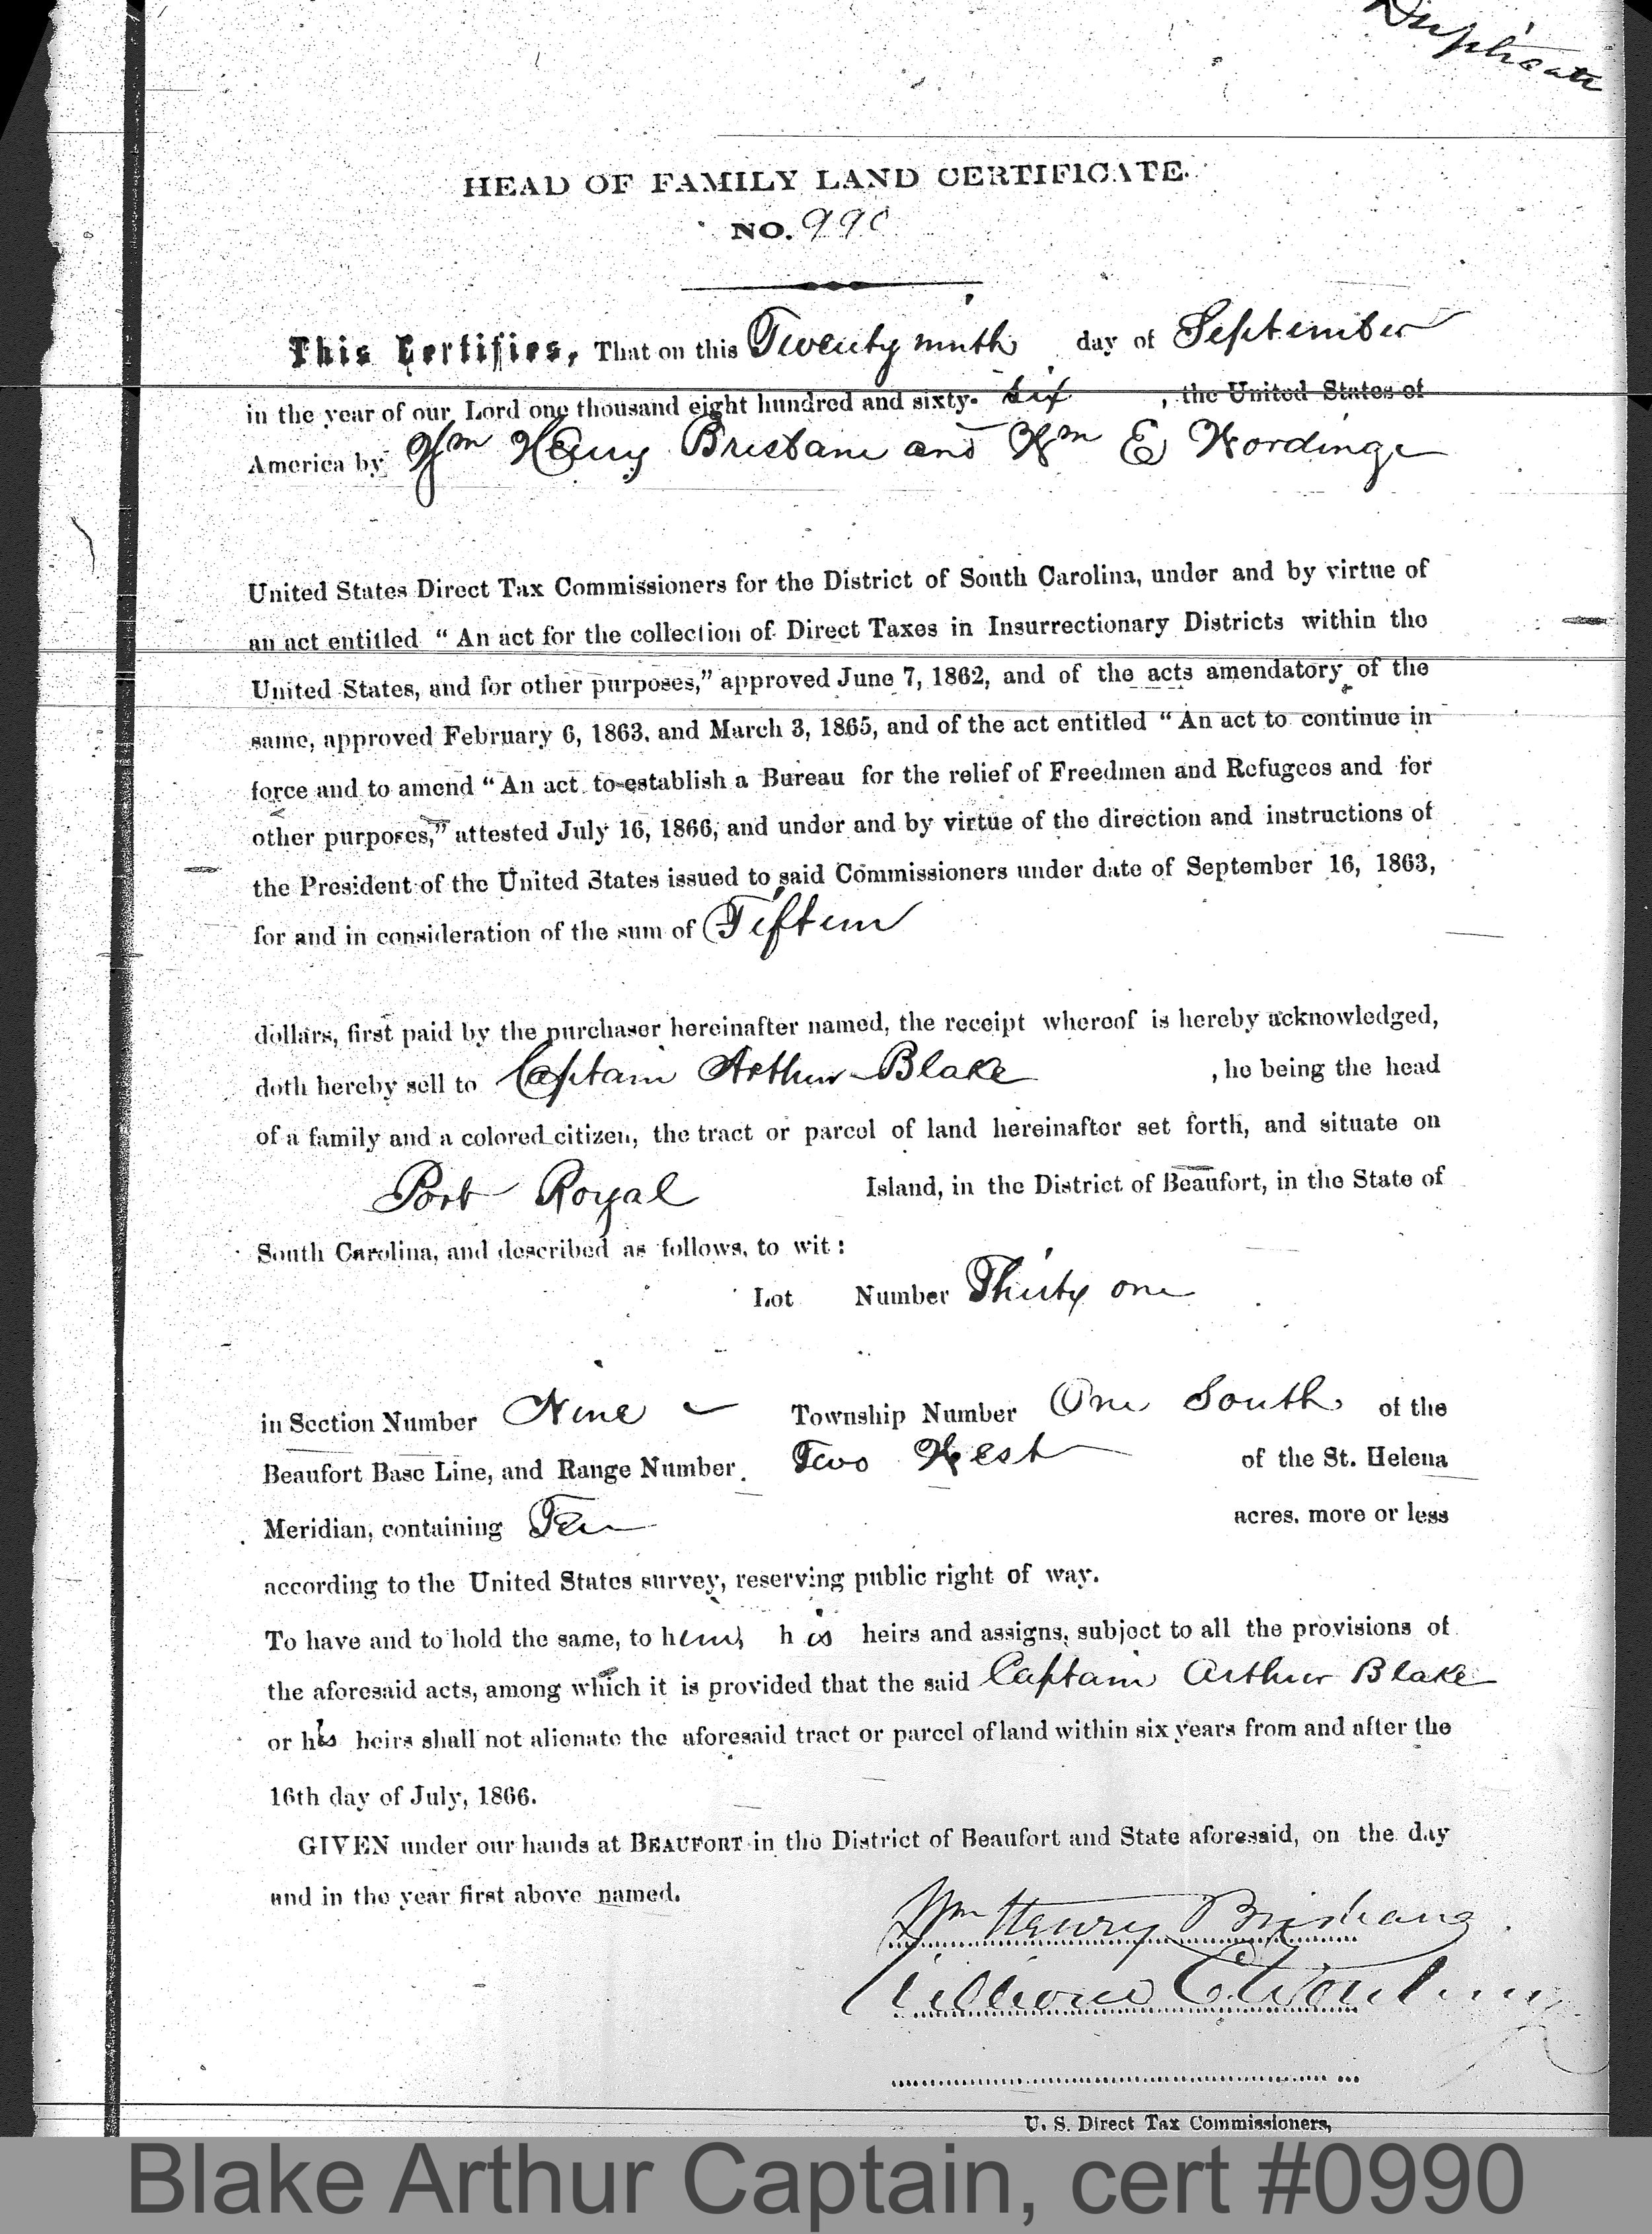 Duplicate
HEAD OF FAMILY LAND CERTIFICATE.
NO. 990
This Certifies, That on this Twenty ninth day of September
in the year of our Lord one thousand eight hundred and sixty- six , the United States of
America by Wm Henry Brisbane and Wm E Wording
United States Direct Tax Commissioners for the District of South Carolina, under and by virtue of
an act entitled “ An act for the collection of Direct Taxes in Insurrectionary Districts within the
United States, and for other purposes,” approved June 7, 1862, and of the acts amendatory of the
same, approved February 6, 1863. and March 3, 1865, and of the act entitled “ An act to continue in
force and to amend “ An act to establish a Bureau for the relief of Freedmen and Refugees and for
other purposes,” attested July 16, 1866, and under and by virtue of the direction and instructions of
the President of the United States issued to said Commissioners under date of September 16, 1863,
for and in consideration of the sum of Fifteen
dollars, first paid by the purchaser hereinafter named, the receipt whereof is hereby acknowledged,
doth hereby sell to Captain Arthur Blake , he being the head
of a family and a colored citizen, the tract or parcel of land hereinafter set forth, and situate on
Port Royal Island, in the District of Beaufort, in the State of
South Carolina, and described as follows, to wit :
Lot Number Thirty one
in Section Number Nine Township Number One South of the
Beaufort Base Line, and Range Number Two West of the St. Helena
Meridian, containing Ten acres. more or less
according to the United States survey, reserving public right of way.
To have and to hold the same, to him, his heirs and assigns, subject to all the provisions of
the aforesaid acts, among which it is provided that the said Captain Arthur Blake
or his heirs shall not alienate the aforesaid tract or parcel of land within six years from and after the
16th day of July, 1866.
GIVEN under our hands at BEAUFORT in the District of Beaufort and State aforesaid, on the day
and in the year first above named.
Wm Henry Brisbane
William E Wording
U. S. Direct Tax Commissioners,
Blake Arthur Captain, cert #0990